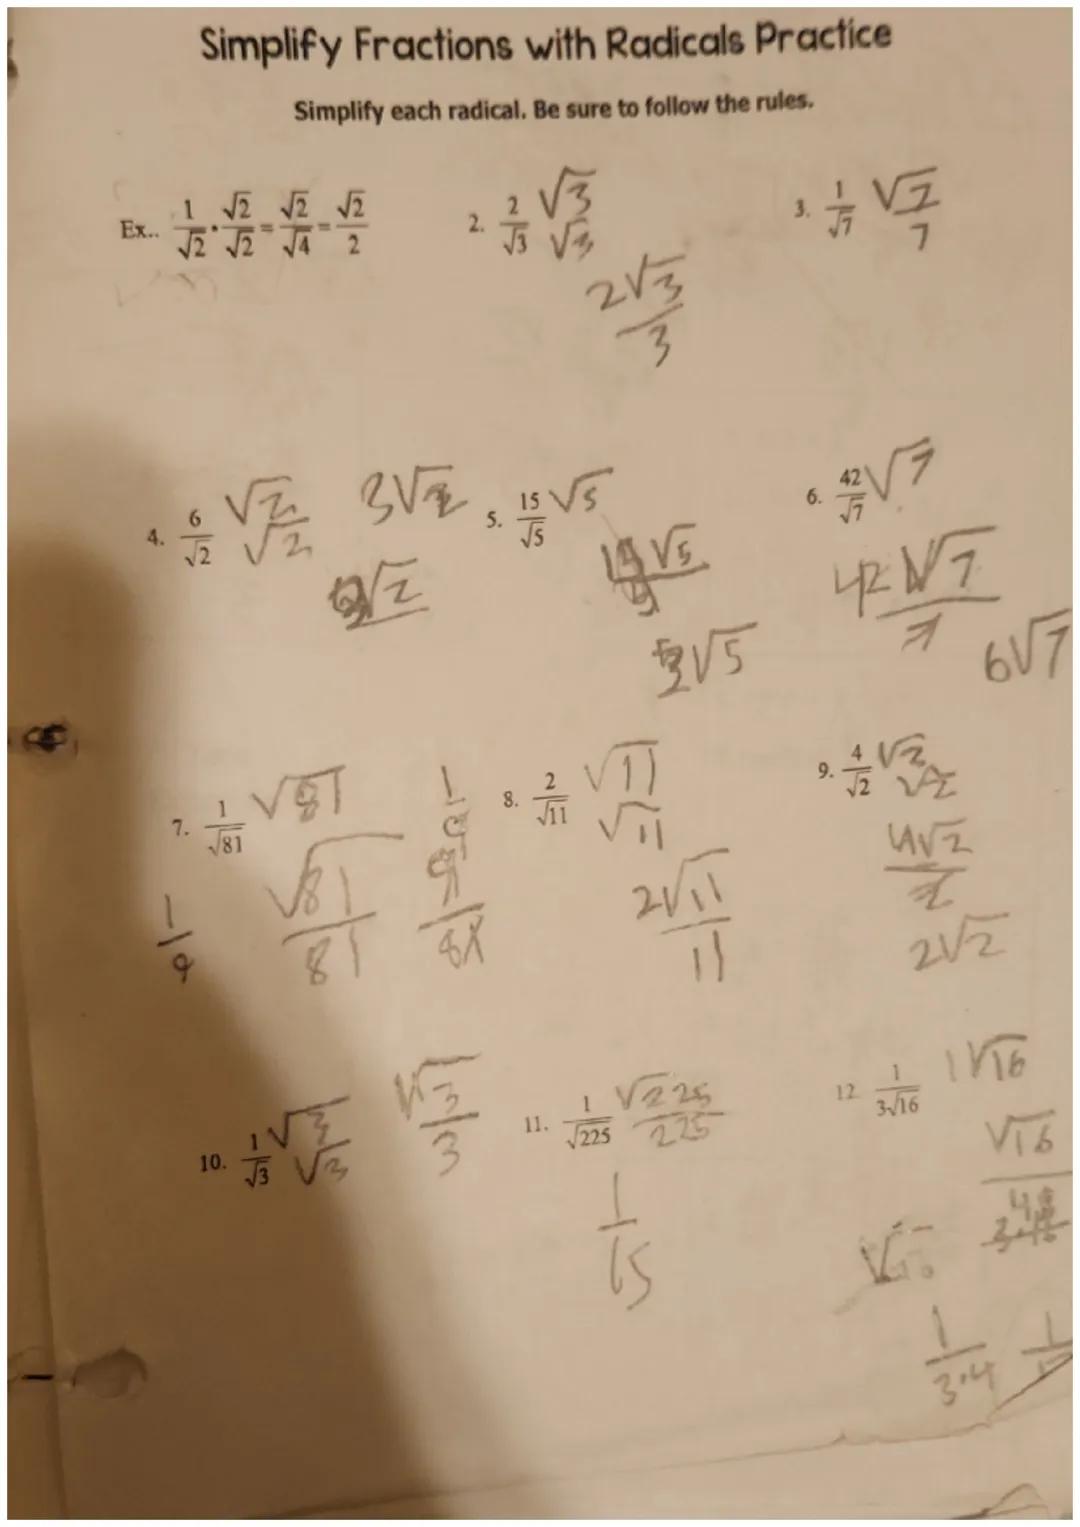 Simplify Fractions with Radicals Practice
Simplify each radical. Be sure to follow the rules.
Ex.. 1/√2 · √2/√2 = √2/√4 = √2/2
2. 2/√3 √3/√3
2√3/3
3. 1/√7 √7/7
4. 6/√2 √2/√2 3√2
√2
5. 15/√5 √5
√5
√5
6. 42/√7 √7
42√7/7
6√7
7. 1/√81 √81
√81/81
1/9
9/81
1/9
8. 2/√11 √11/√11
2√11/11
9. 4/√2 √2/√2
4√2/2
2√2
10. 1/√3 √3/√3 √3/3
11. 1/√225 √225/225
1/15
12 1/3√16 1√16
√16
1/3·4